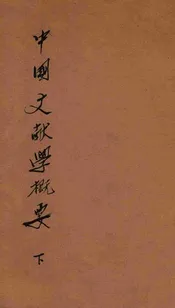 中國文献學概要 下